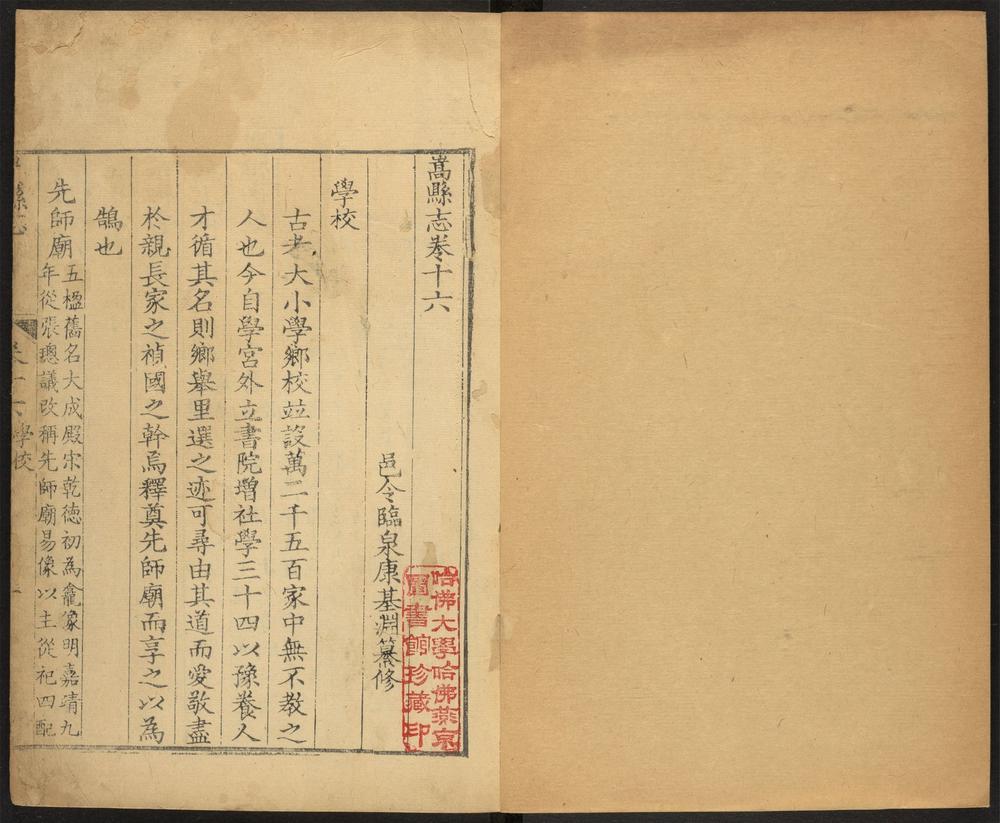 嵩縣志卷十六
邑令臨泉康基淵纂修
學校
古者大小學鄉校並設萬二千五百家中無不教之
人也今自學宮外立書院增社學三十四以豫養人
才循其名則鄉舉里選之迹可尋由其道而愛敬盡
於親長家之禎國之幹焉釋奠先師廟而享之以為
鵠也
先師廟
五楹舊名大成殿宋乾德初為龕像明嘉靖九
年從張璁議改稱先師廟易像以主從祀四配
縣志
卷十六學校
哈佛大學哈佛燕京
圖書館珍藏印